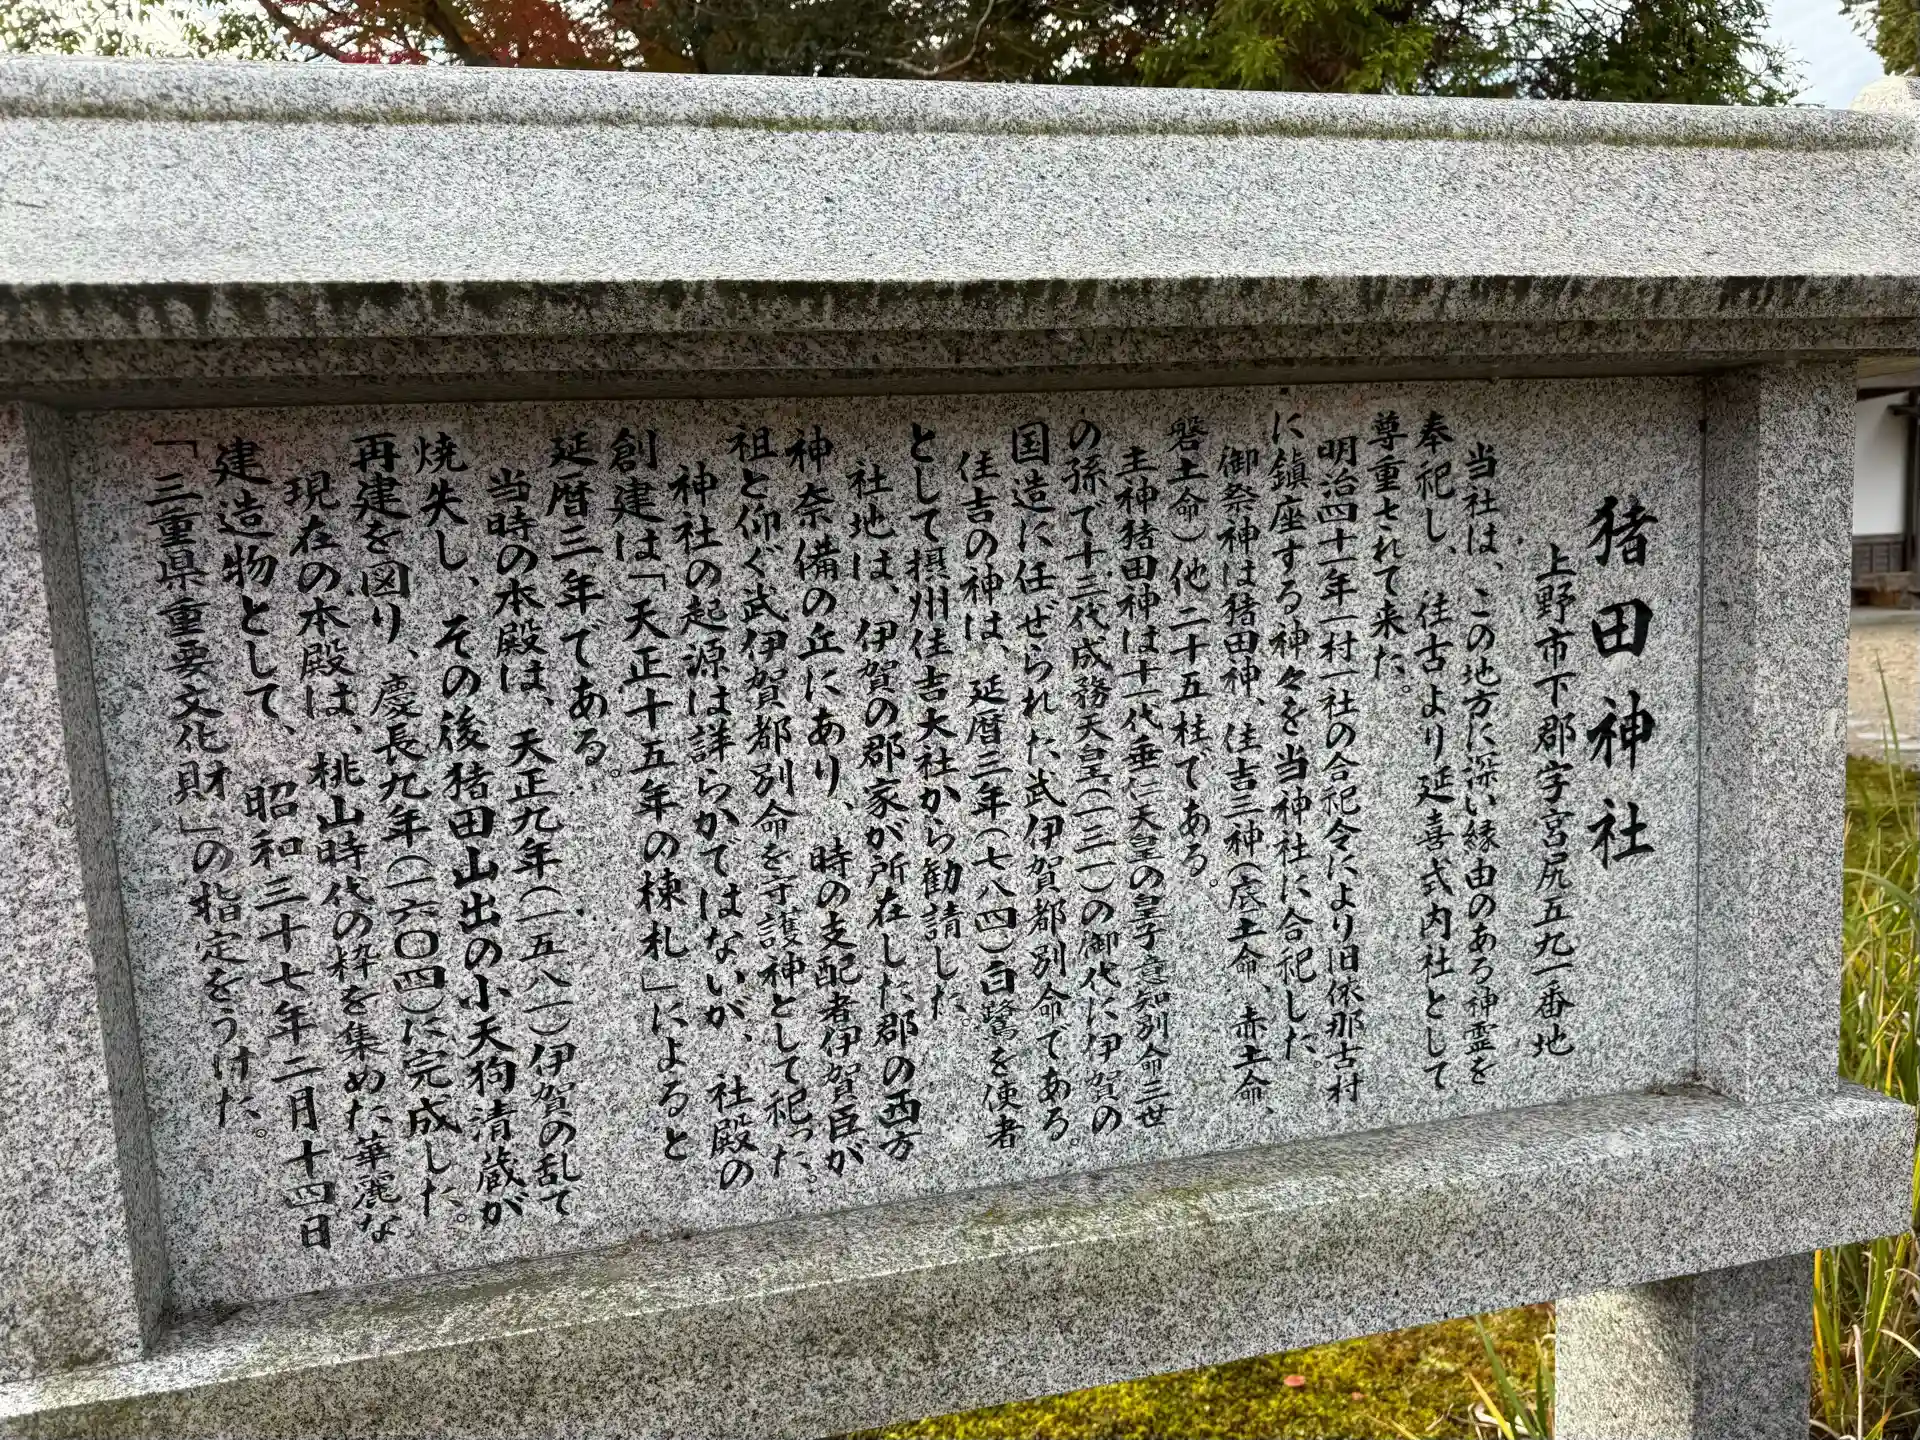 猪田神社
上野市下郡字宮尻五九一番地
当社は、この地方に深い縁由のある神霊を
奉祀し、往古より延喜式内社として
尊重されて来た。
明治四十一年一村一社の合祀令により旧依那古村
に鎮座する神々を当神社に合祀した。
御祭神は猪田神、住吉三神(底土命、赤土命、
磐土命)他二十五柱である。
主神猪田神は十一代垂仁天皇の皇子意知別命三世
の孫で十三代成務天皇(一三一)の御代に伊賀の
国造に任ぜられた武伊賀都別命である。
住吉の神は、延暦三年(七八四)白鷺を使者
として摂州住吉大社から勧請した。
社地は、伊賀の郡家が所在した郡の西方
神奈備の丘にあり、時の支配者伊賀臣が
祖と仰ぐ武伊賀都別命を守護神として祀った。
神社の起源は詳らかではないが、社殿の
創建は「天正十五年の棟札」によると
延暦三年である。
当時の本殿は、天正九年(一五八一)伊賀の乱て
焼失し、その後猪田山出の小天狗清蔵が
再建を図り、慶長九年(一六〇四)に完成した。
現在の本殿は、桃山時代の粋を集めた華麗な
建造物として、昭和三十七年二月十四日
「三重県重要文化財」の指定をうけた。